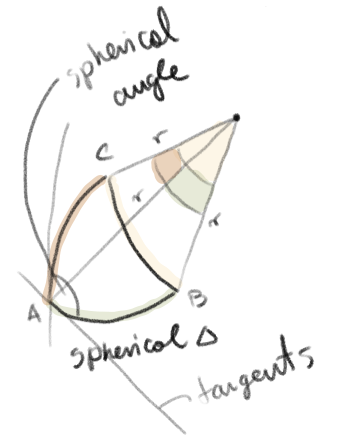 spherical
angle
C
r
r
r
A
B
spherical Δ
tangents